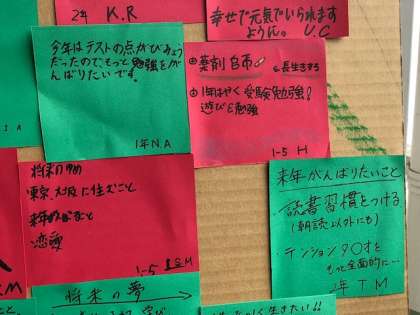 2年 K.R
幸せで元気でいられます
ように。 U.C
今年はテストの点がびみょう
だったので、もっと勉強をが
んばりたいです。
1年N.A
薬剤師
長生きする
1年はやく受験勉強!
遊び&勉強
1-5 H
将来のゆめ
東京、大阪に住むこと
恋愛
1-5 I&M
来年がんばりたいこと
・読書習慣をつける
(朝読以外にも)
・テンション
もっと全面的に…
2年 T M
将来の夢
生きたい!!